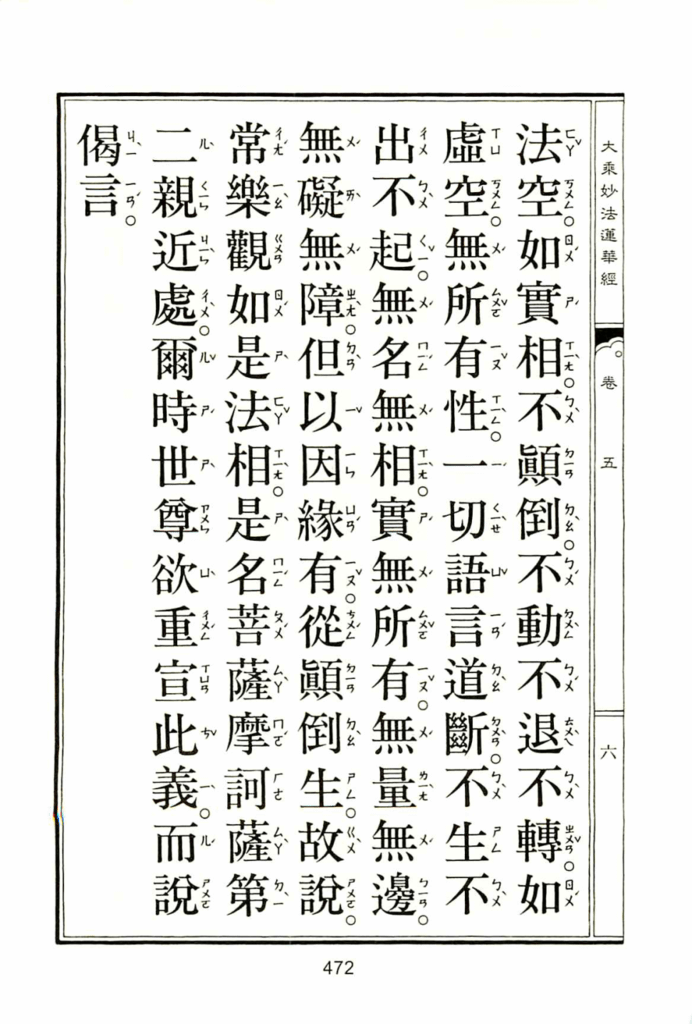 大乘妙法蓮華經 卷五 六
法空。如實相。不顛倒。不動不退不轉。如
虛空。無所有性。一切語言道斷。不生不
出不起。無名無相。實無所有。無量無邊。
無礙無障。但以因緣有。從顛倒生。故說。
常樂觀如是法相。是名菩薩摩訶薩第
二親近處。爾時世尊欲重宣此義。而說
偈言。
472